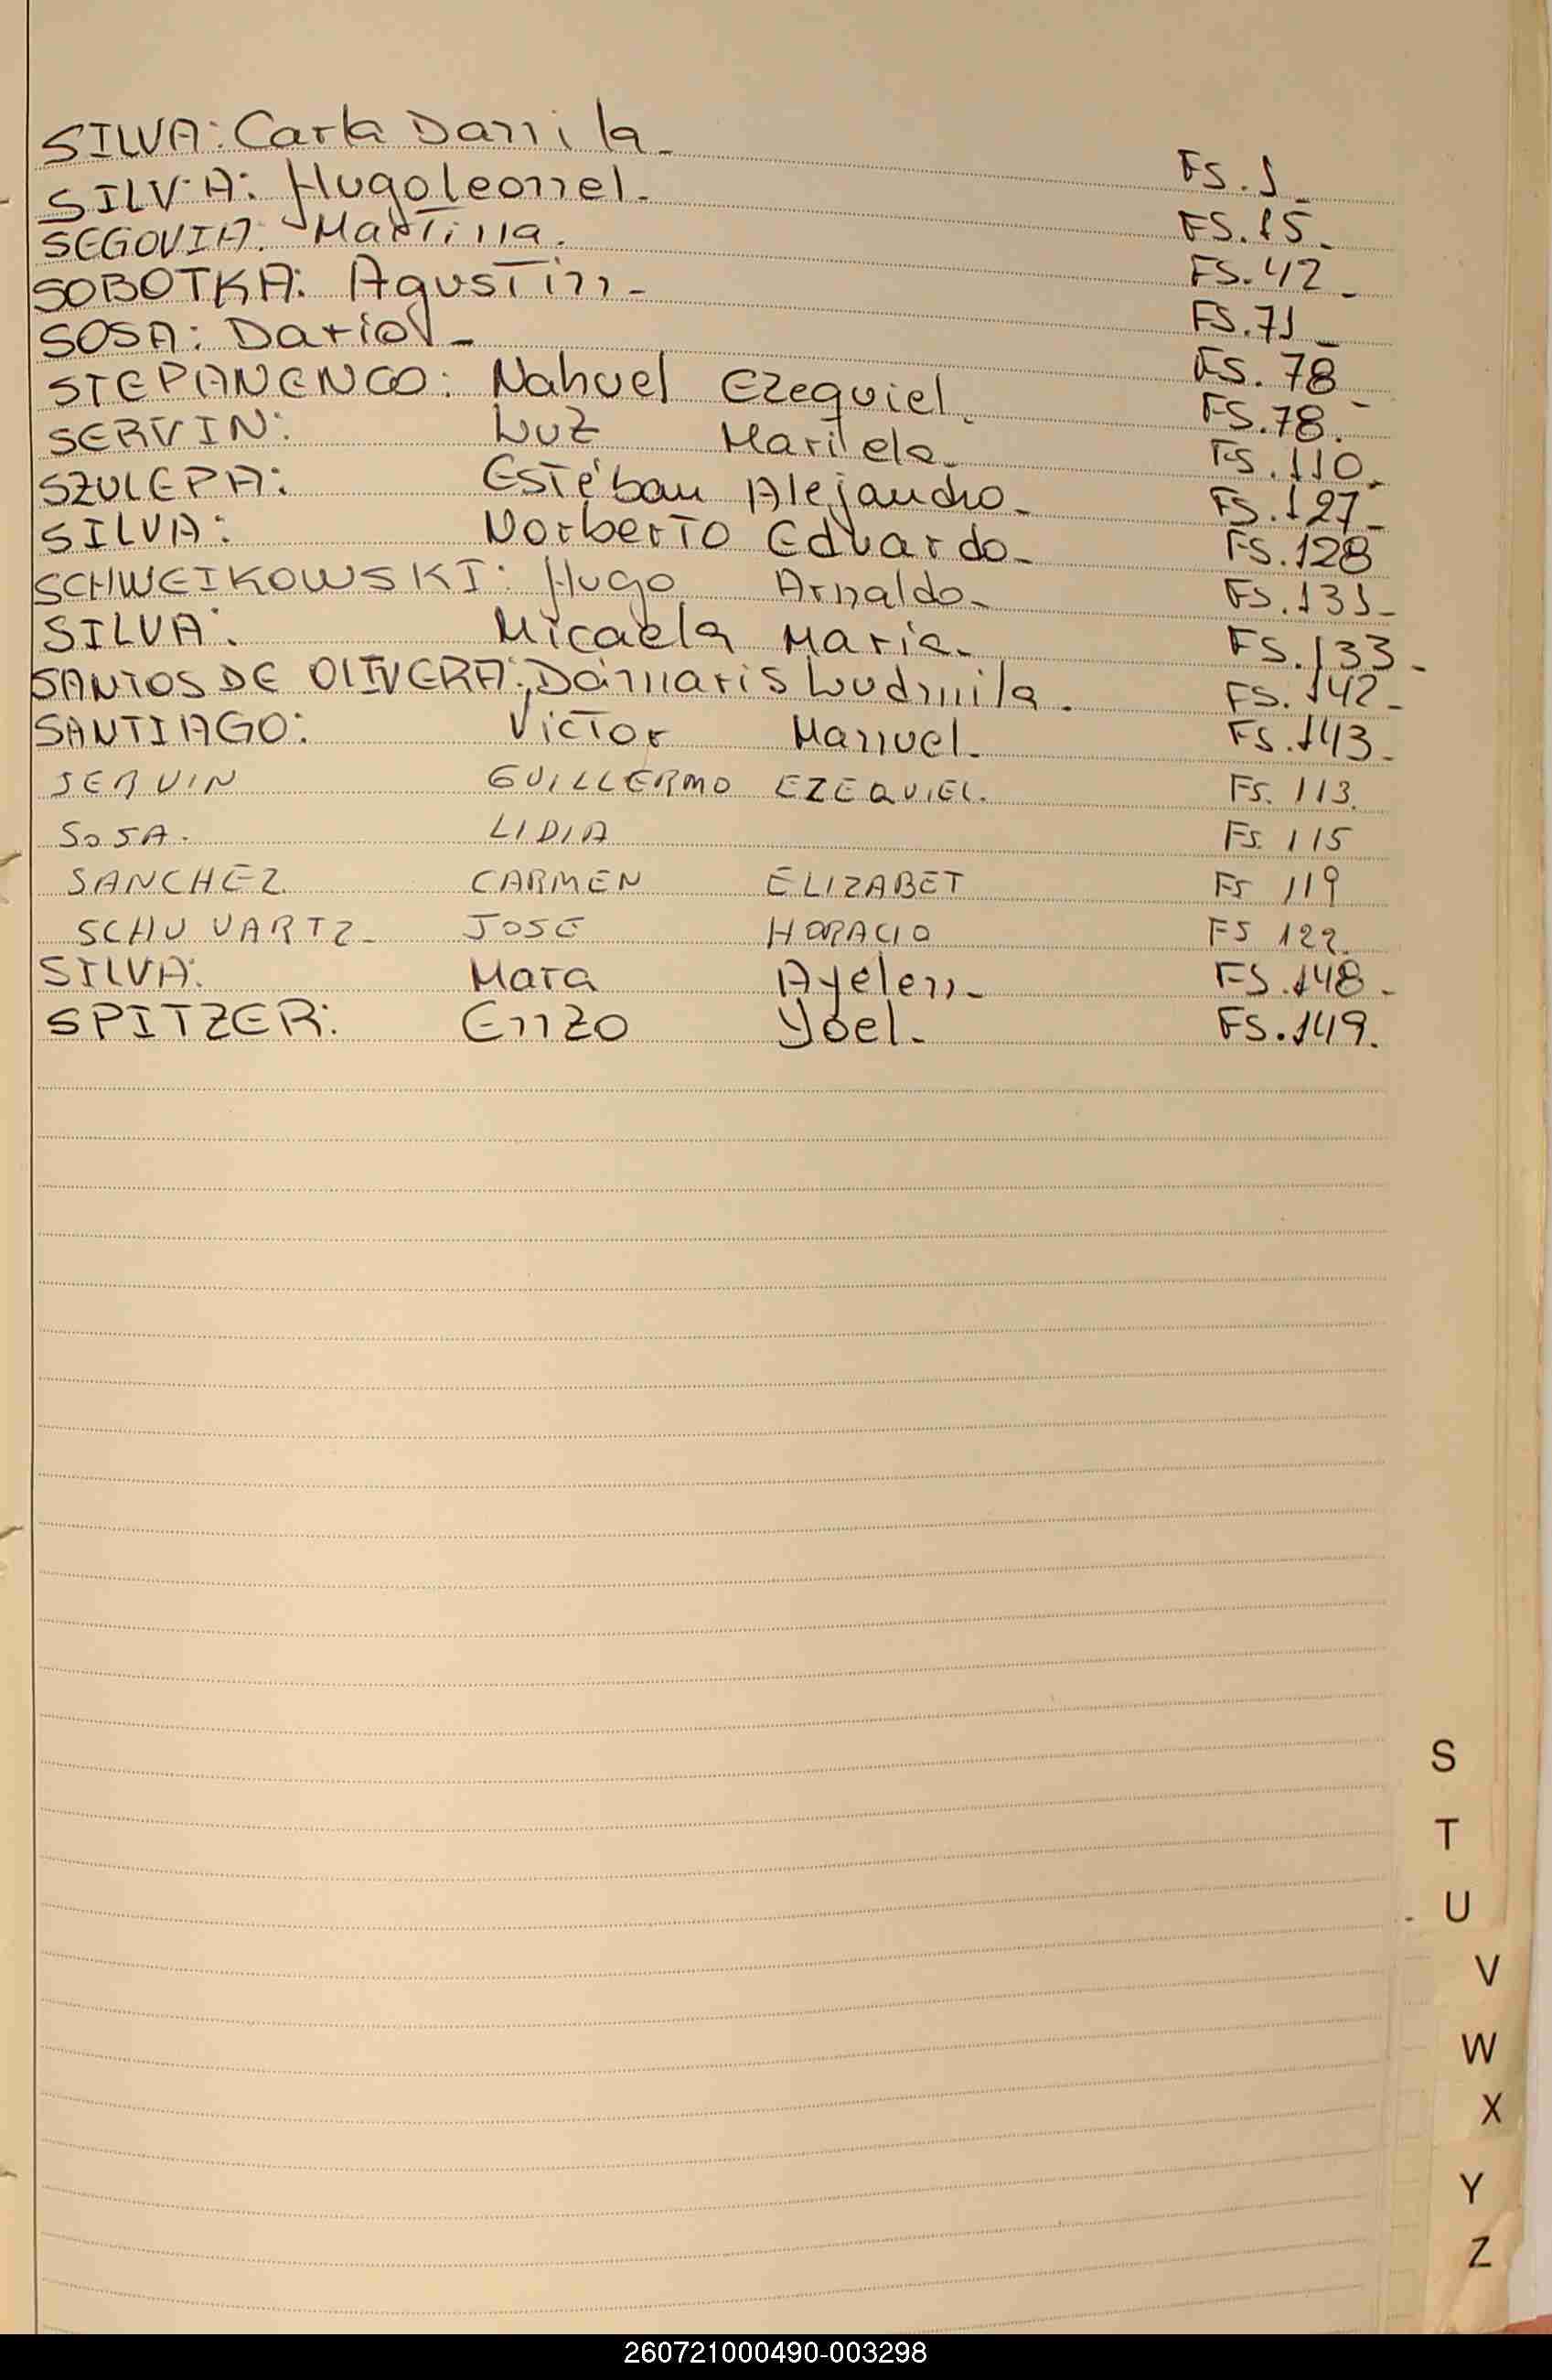 SILVA: Carla Danila- FS.1_
SILVA: Hugo leonel- FS.15_
SEGOVIA: Martina. FS.42_
SOBOTKA: Agustin- FS.71_
SOSA: Dario- FS.78
STEPANENCO: Nahuel Ezequiel. FS.78.-
SERVIN: Luz Mariela- FS.110_
SZULEPA: Estéban Alejandro- FS.127-
SILVA: Norberto Eduardo- FS.128
SCHWEIKOWSKI: Hugo Arnaldo- FS.131-
SILVA: Micaela Maria- FS.133-
SANTOS DE OLIVERA: Dámaris Ludmila. FS.142-
SANTIAGO: Victor Manuel- FS.143-
SERVIN GUILLERMO EZEQUIEL. FS. 113.
SOSA. LIDIA FS. 115
SANCHEZ CARMEN ELIZABET FS 119
SCHUVARTZ- JOSE HORACIO FS 122.
SILVA: Mara Ayelen- FS.148-
SPITZER: Enzo Yoel- FS.149.
S
T
U
V
W
X
Y
Z
260721000490-003298